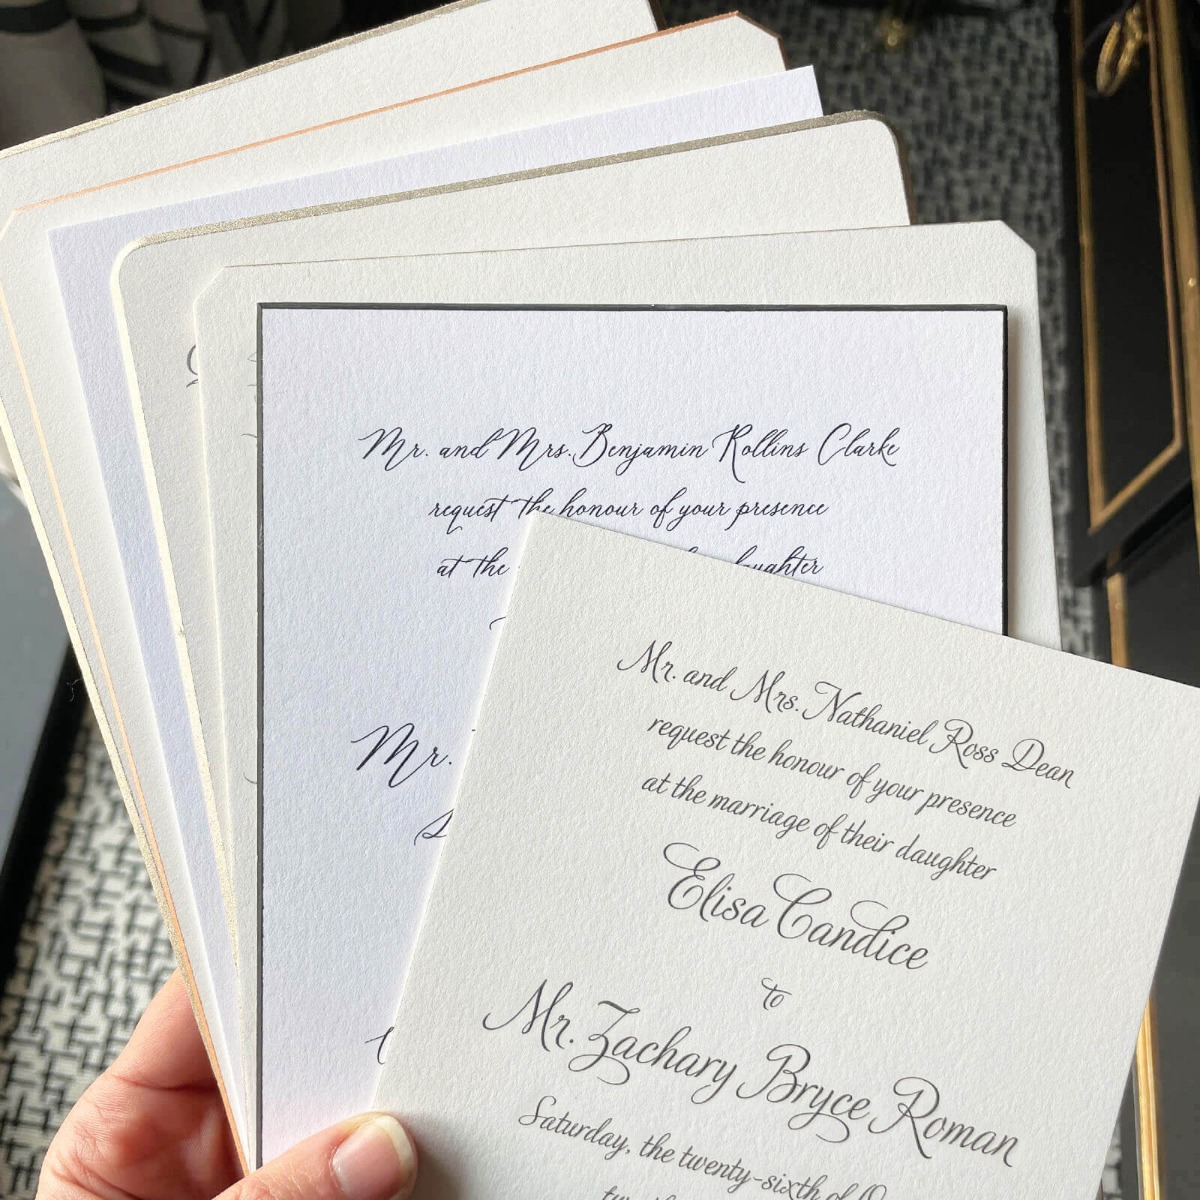 Mr. and Mrs. Benjamin Rollins Clarke
request the honour of your presence
at the daughter
Mr.
Mr. and Mrs. Nathaniel Ross Dean
request the honour of your presence
at the marriage of their daughter
Elisa Candice
to
Mr. Zachary Bryce Roman
Saturday, the twenty-sixth of